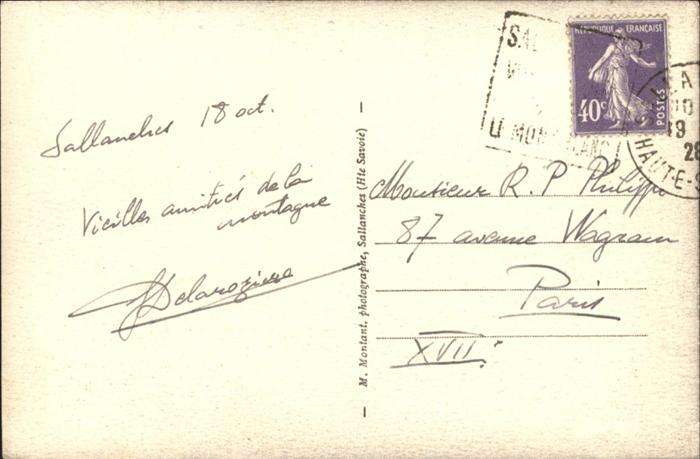 Sallanches 18 oct.
Vieilles amitiés de la
montagne
Delaroziere
M. Montant, photographe, Sallanches (Hte Savoie)
RÉPUBLIQUE FRANÇAISE
40c
POSTES
LE MONT BLANC
HAUTE-S
Monsieur R. P. Philippe
87 avenue Wagram
Paris
XVII.